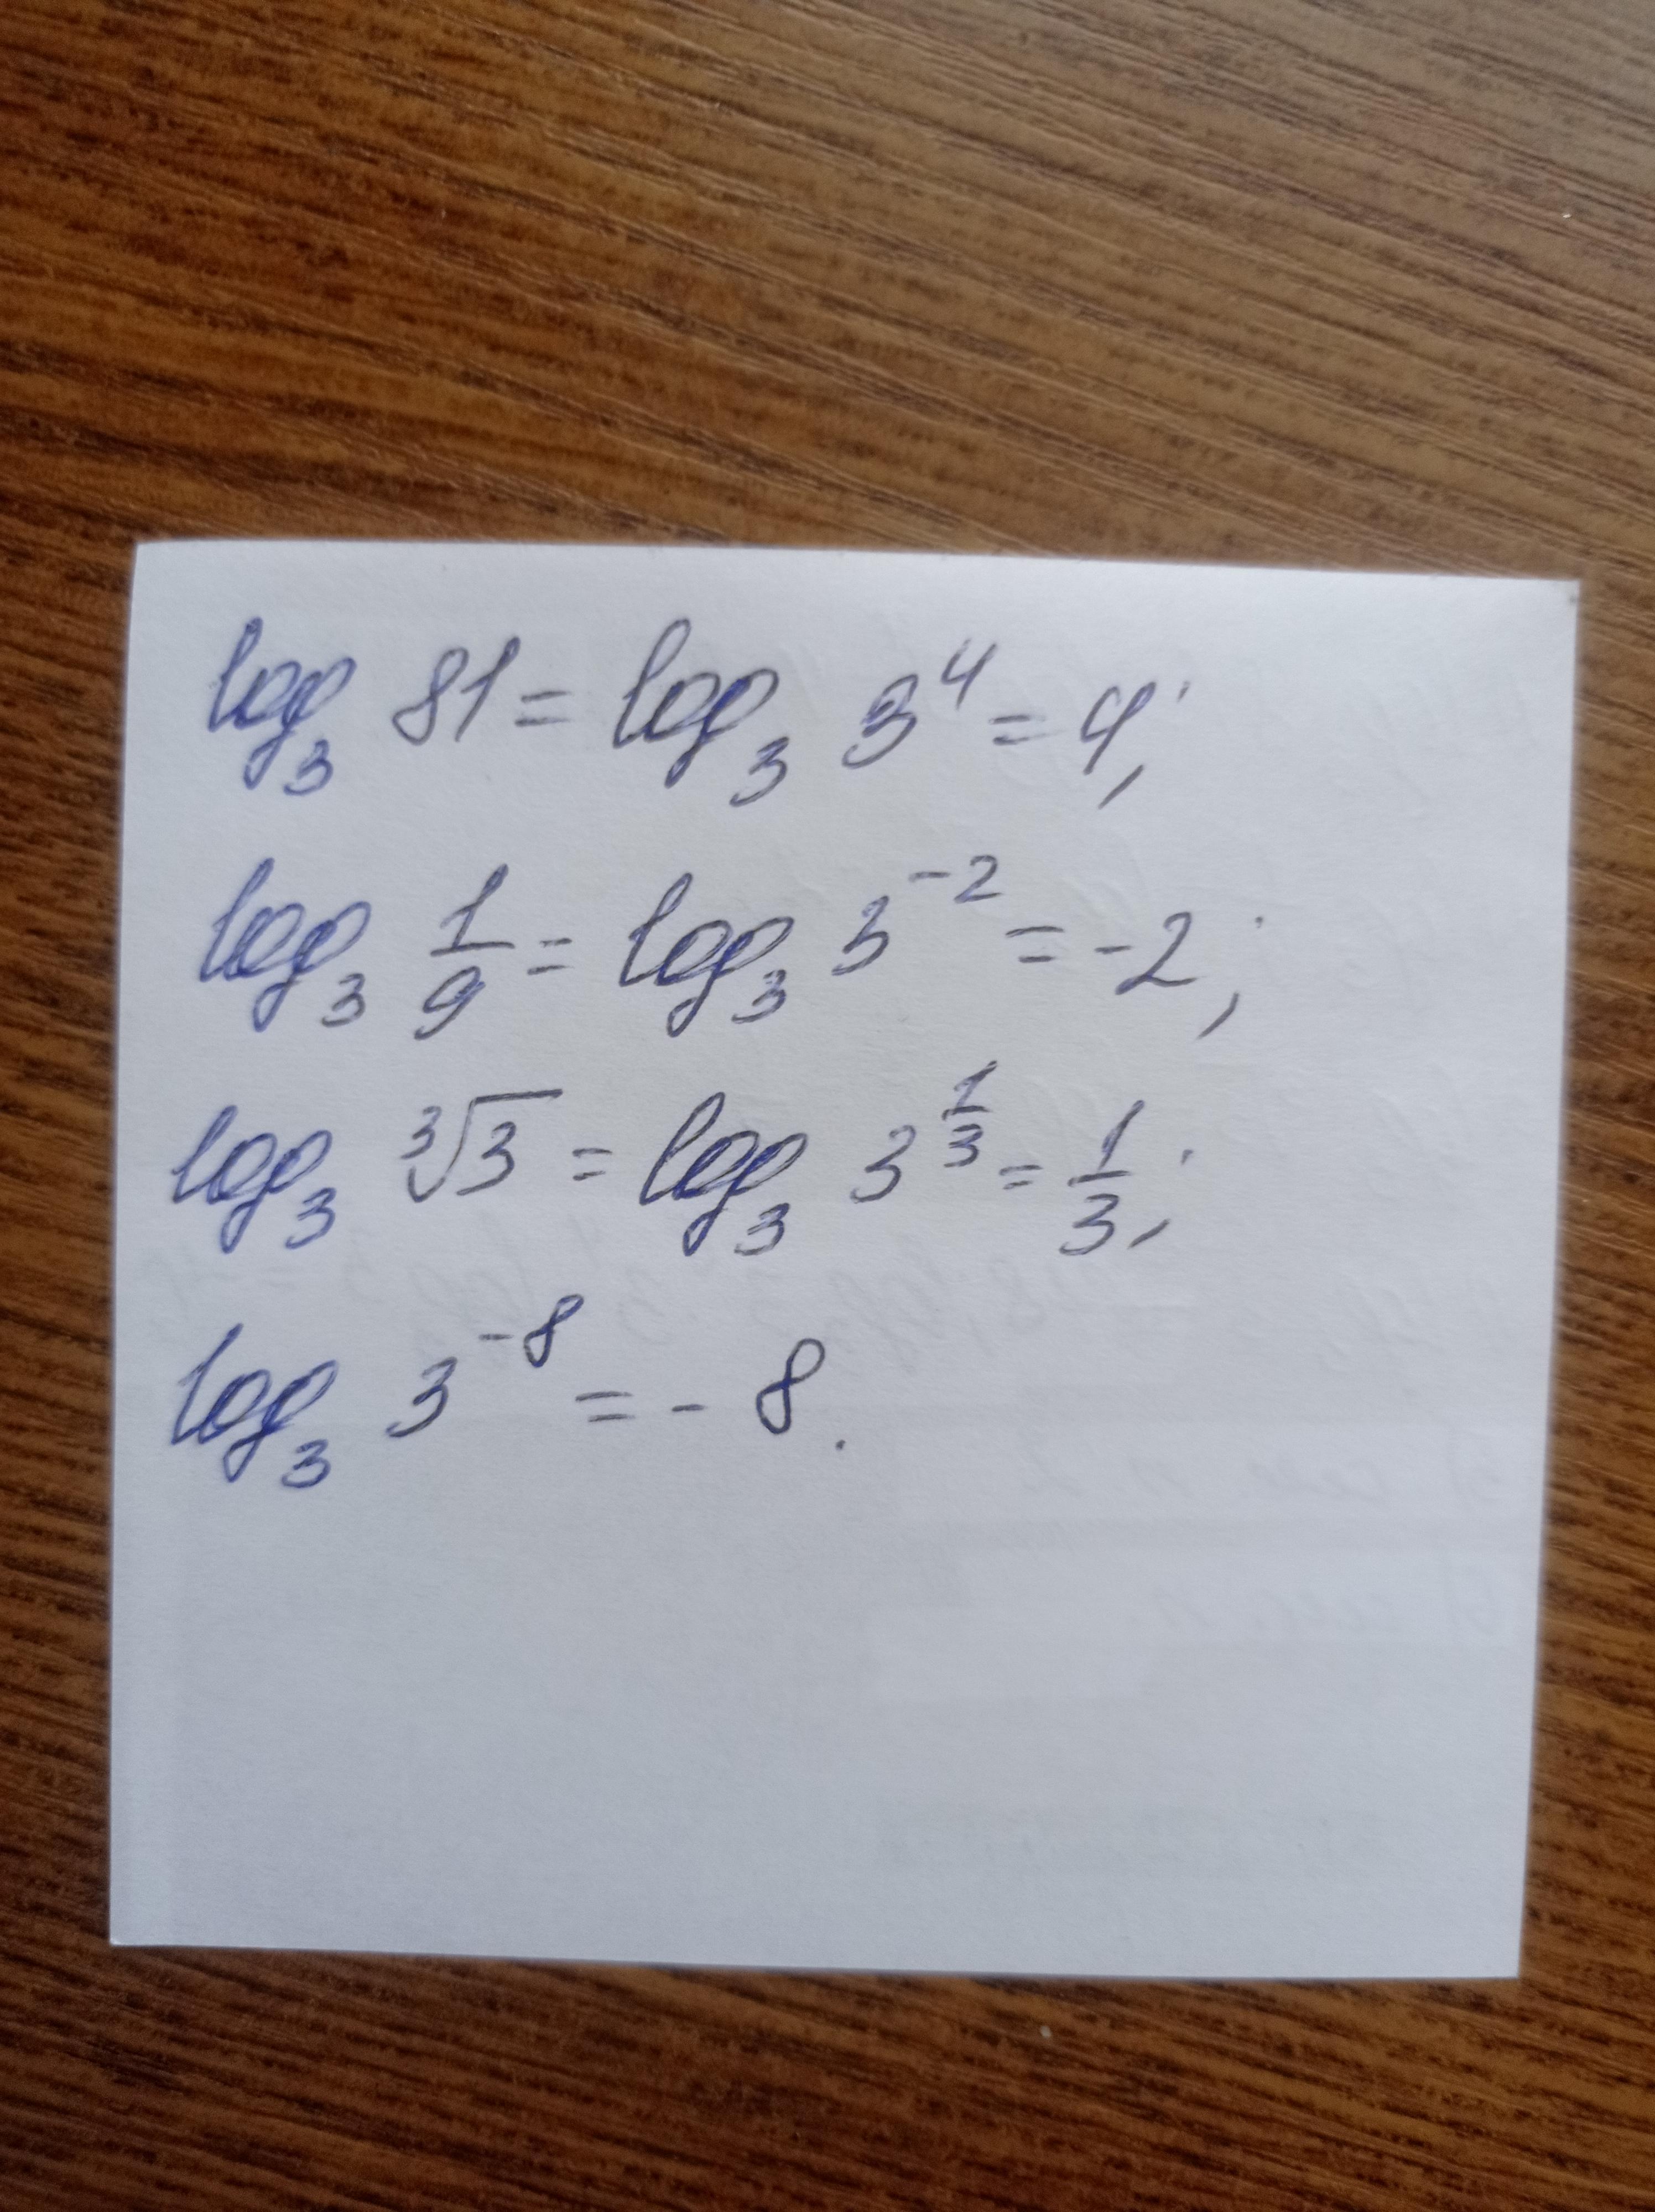 log₃ 81 = log₃ 3⁴ = 4;
log₃ 1/9 = log₃ 3⁻² = -2;
log₃ ∛3 = log₃ 3^(1/3) = 1/3;
log₃ 3⁻⁸ = - 8.